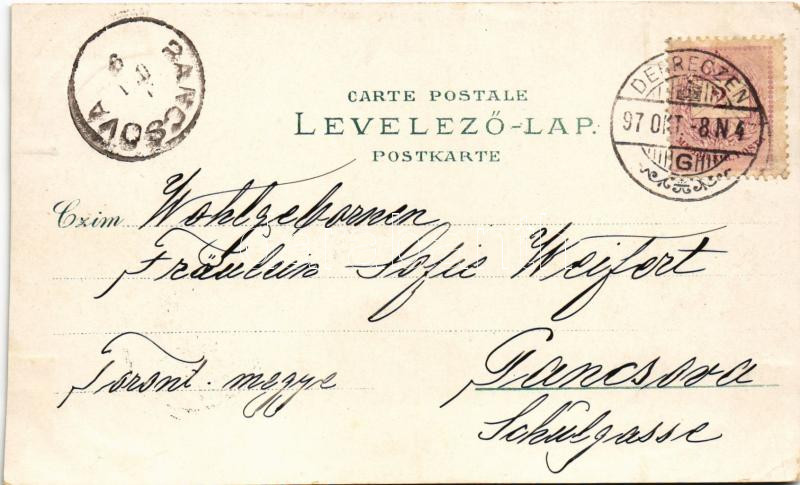 PANCSOVA
CARTE POSTALE
LEVELEZŐ-LAP.
POSTKARTE
DEBRECZEN
97 OKT. -8 N 4
G
Czim Wohlgebornen
Fräulein Sofie Weifert
Toront. megye
Pancsova
Schulgasse